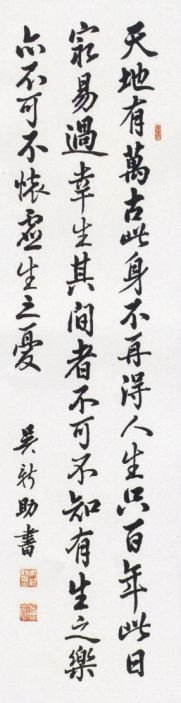 天地有萬古此身不再得人生只百年此日
最易過幸生其間者不可不知有生之樂
亦不可不懷虛生之憂
吳新助書